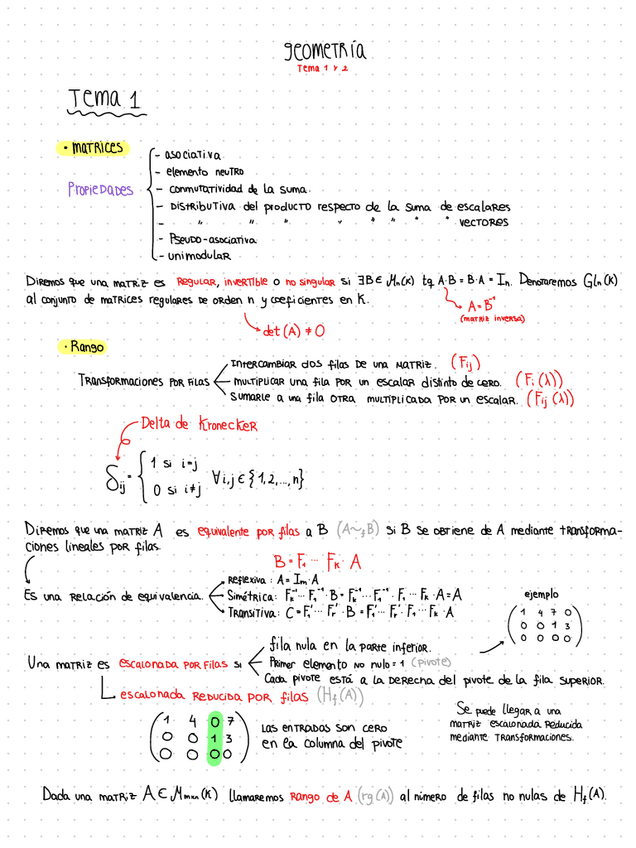 geometría
Tema 1 y 2
Tema 1
· matrices
Propiedades
- asociativa
- elemento neutro
- conmutatividad de la suma.
- Distributiva del producto respecto de la suma de escalares
- " " " " " " " vectores
- Pseudo-asociativa
- unimodular
Diremos que una matriz es Regular, invertible o no singular si ∃B ∈ Mn(K) tq A·B = B·A = In. Denotaremos Gln(K)
al conjunto de matrices regulares de orden n y coeficientes en K.
A = B⁻¹
(matriz inversa)
det(A) ≠ 0
· Rango
Transformaciones por filas
Intercambiar dos filas de una matriz. (Fij)
multiplicar una fila por un escalar distinto de cero. (Fi(λ))
Sumarle a una fila otra multiplicada por un escalar. (Fij(λ))
Delta de Kronecker
δij = { 1 si i=j
0 si i≠j ∀i,j ∈ {1,2,...,n}
Diremos que una matriz A es equivalente por filas a B (A~fB) si B se obtiene de A mediante transforma-
ciones lineales por filas.
B = F1 ··· Fk · A
Es una relación de equivalencia.
Reflexiva: A = Im · A
Simétrica: Fk⁻¹ ··· F1⁻¹ · B = Fk⁻¹ ··· F1⁻¹ · F1 ··· Fk · A = A
Transitiva: C = F1' ··· Fr' · B = F1' ··· Fr' · F1 ··· Fk · A
ejemplo
1 4 7 0
0 0 1 3
0 0 0 0
Una matriz es escalonada por filas si
fila nula en la parte inferior.
Primer elemento no nulo = 1 (pivote)
Cada pivote está a la derecha del pivote de la fila superior.
escalonada reducida por filas (Hf(A))
1 4 0 7
0 0 1 3
0 0 0 0
las entradas son cero
en la columna del pivote
Se puede llegar a una
matriz escalonada reducida
mediante transformaciones.
Dada una matriz A ∈ Mmxn(K) llamaremos Rango de A (rg(A)) al número de filas no nulas de Hf(A).